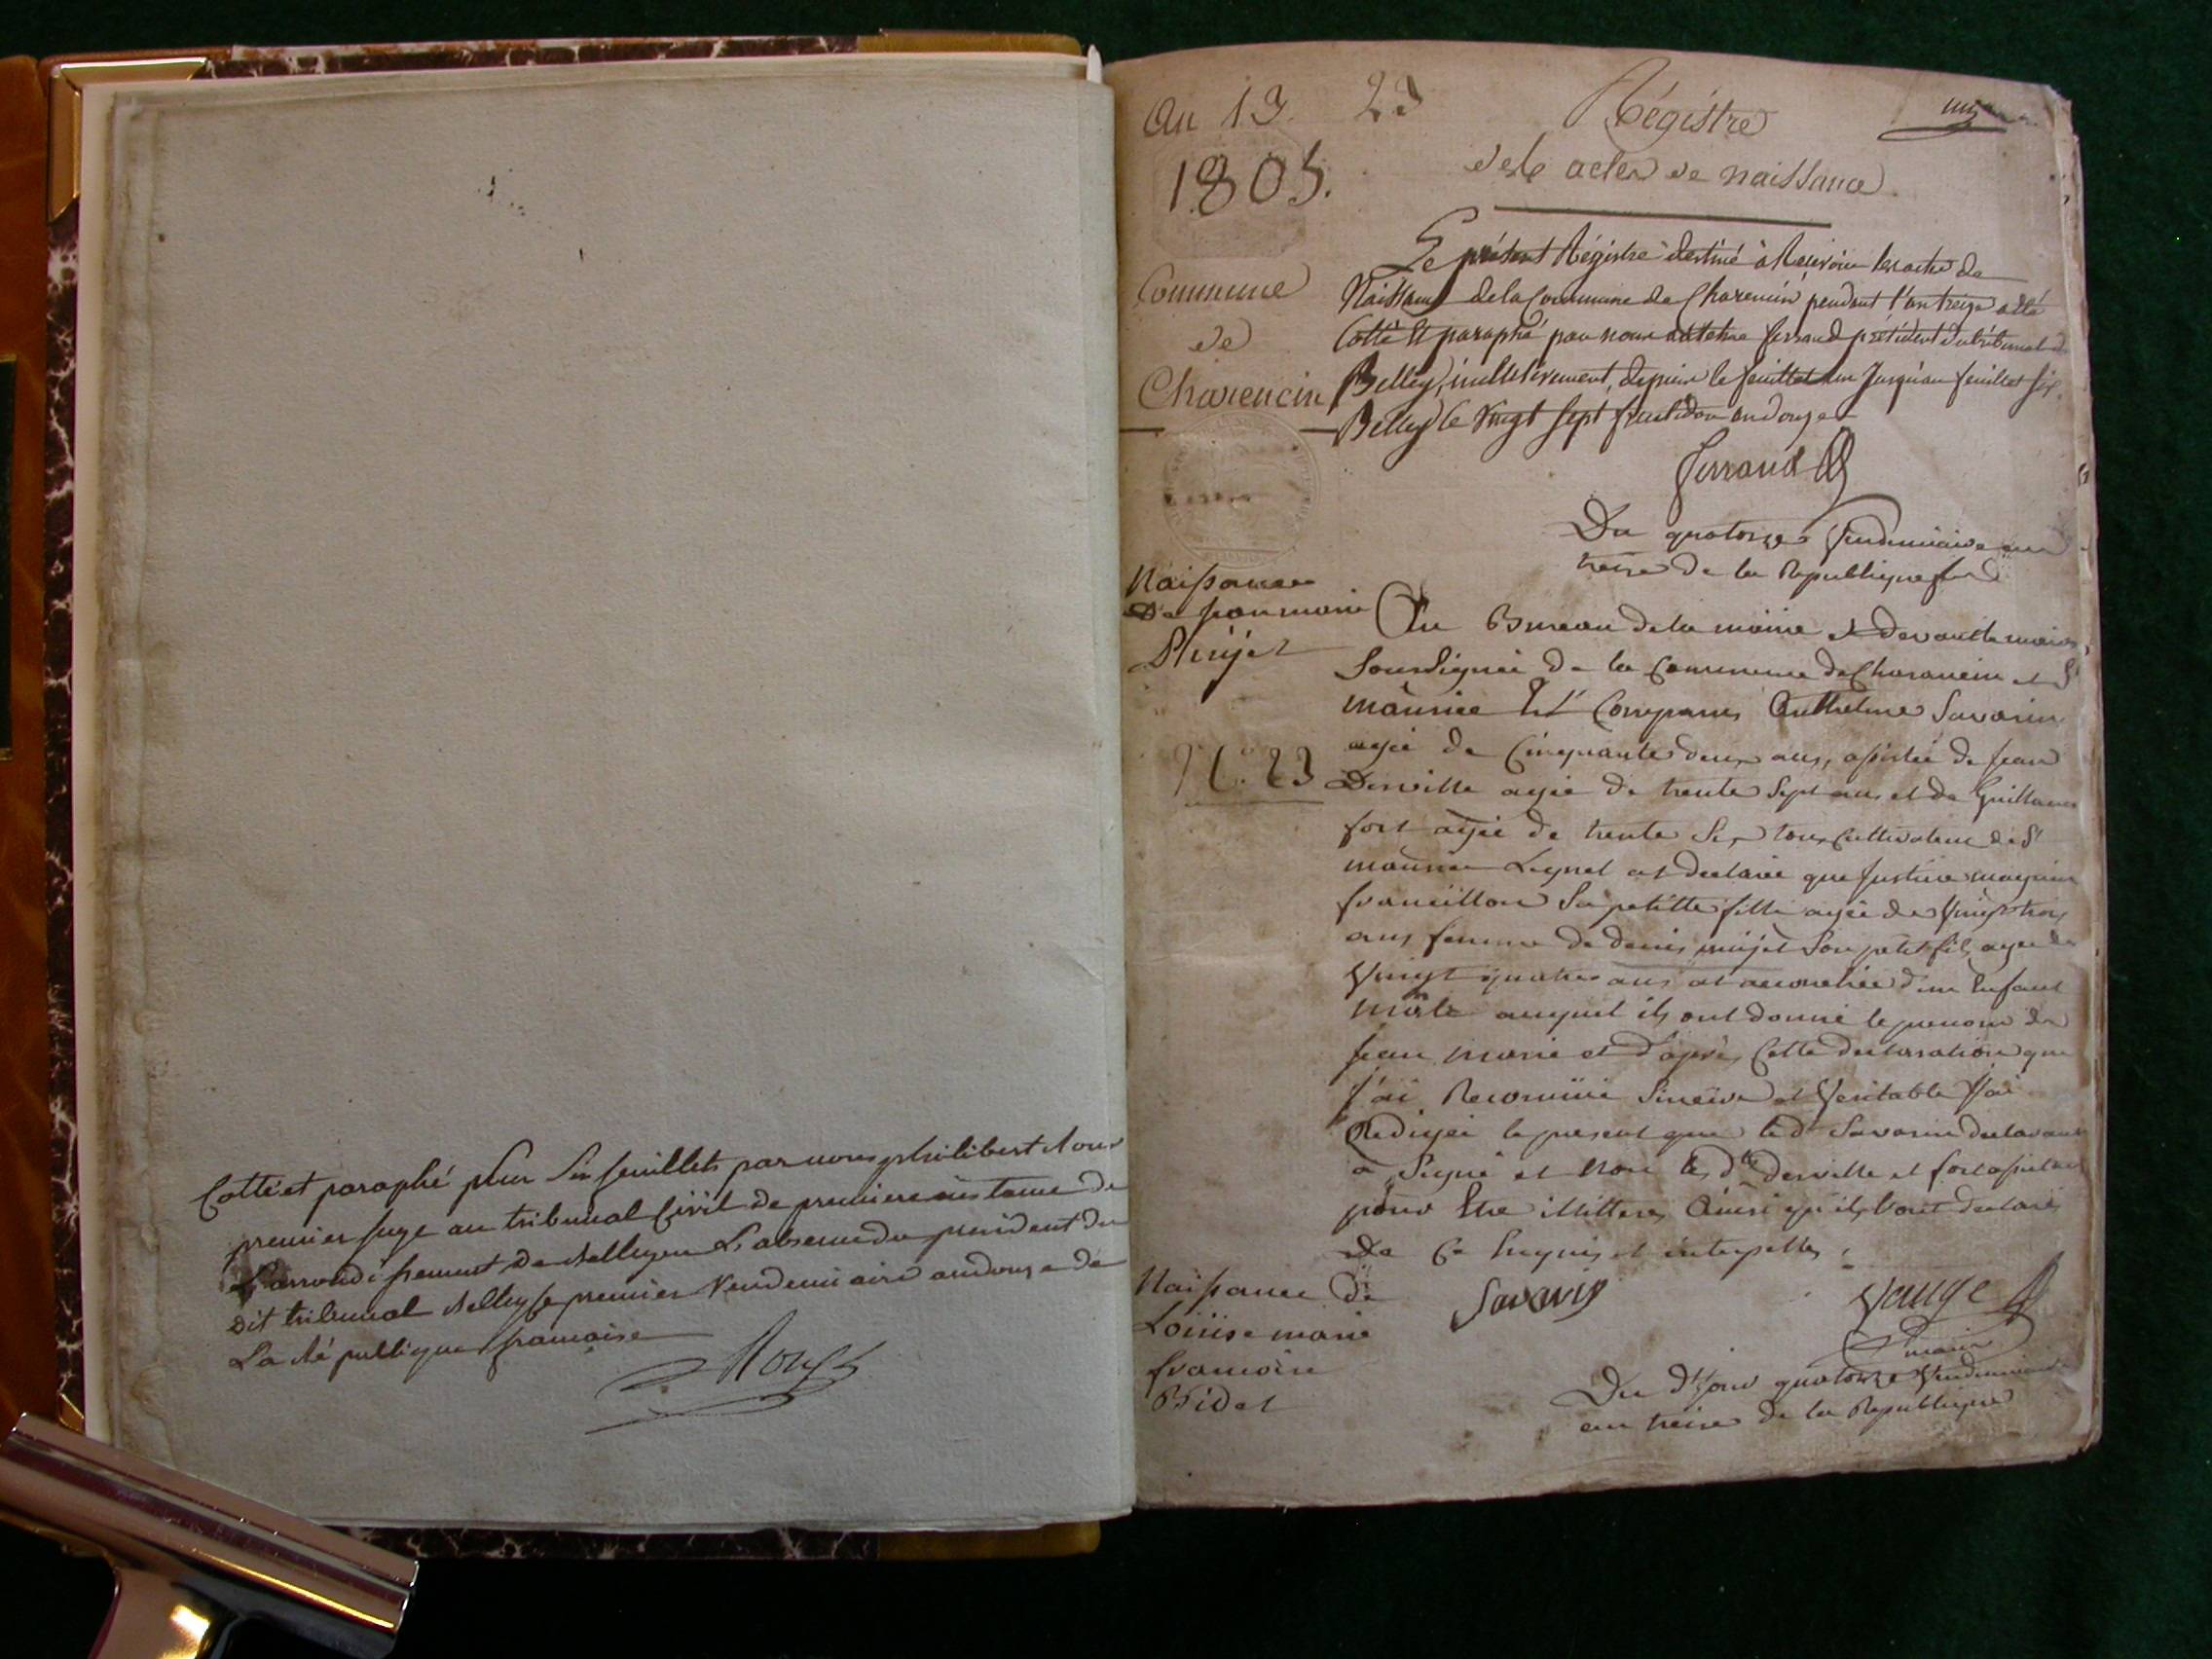 Cotté et paraphé pour six feuillets par nous philibert Roux
premier juge au tribunal Civil de premiere instance de
L'arrondissement de Belley en L'absence du president du
dit tribunal Belley le premier Vendemiaire an douze de
La République française
Roux
An 13. 23
1805.
Régistre
des actes de naissance
Commune
de
Charencin
Le présent Régistre destiné à Recevoir les actes de
Naissance de la Commune de Charencin pendant l'an treize a été
Cotté Et paraphé par nous antelme ferrand président du tribunal de
Belley, inclusivement, depuis le feuillet un Jusqu'au feuillet six.
Belley le Vingt sept fructidor an douze
Ferrand
Du quatorze Vendemiaire an
treize de la Republique
Naissance
De jean marie
Pujet
N.° 23
Au Bureau de la mairie et devant le maire
Soussigné de la Commune de Charancin et St
maurice Est Comparu Anthelme Savarin
agé de Cinquante deux ans, assisté de jean
Derville agé de trente Sept ans et de Guillaume
fort agé de trente Six tous Cultivateurs de St
maurice Lequel at declaré que justine
francillon Sa petitte fille agée de Vingt trois
ans femme de denis pujet Son petit fils agé de
Vingt quatre ans at accouchée d'un Enfant
mâle auquel ils ont donné le prenom de
jean marie et d'après Cette declaration que
j'ai Reconnüe Sincère et Veritable j'ai
Redigé le present que led Savarin declarant
a Signé et Non les dts derville et fort
pour Etre illitteres Ainsi qu'ils l'ont declaré
De Ce Enquis et interpellés
Savarin
Vauge
maire
Naissance de
Loüise marie
francoise
Bidet
Du dt jour quatorze Vendemiaire
an treize de la Republique